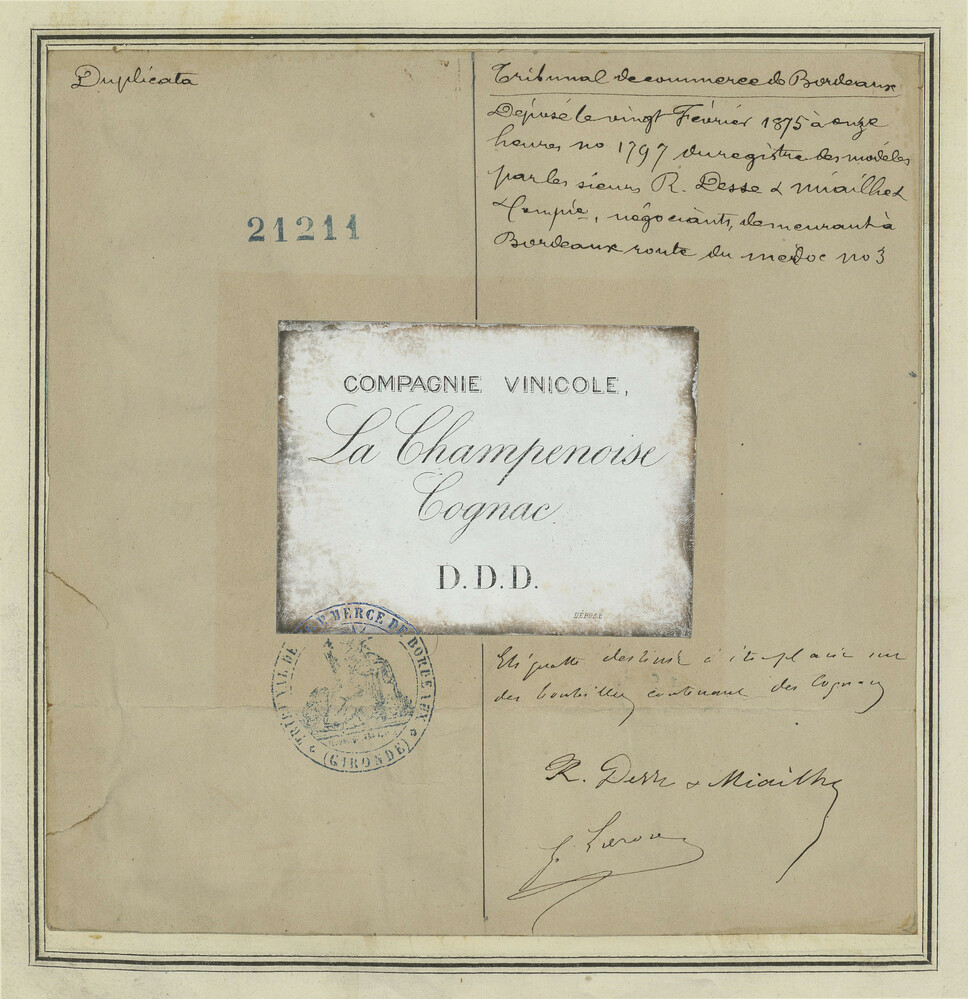 Duplicata
21211
Tribunal de commerce de Bordeaux
Déposé le vingt Février 1875 à onze
heures no 1797 du registre des modèles
par les sieurs R. Desse & Miailhe &
Compie, négociants, demeurant à
Bordeaux route du médoc no 3
COMPAGNIE VINICOLE,
La Champenoise
Cognac
D.D.D.
DÉPOSÉ
TRIBUNAL DE COMMERCE DE BORDEAUX
(GIRONDE)
Etiquette destinée à être placée sur
des bouteilles contenant des Cognacs
R. Desse & Miailhe